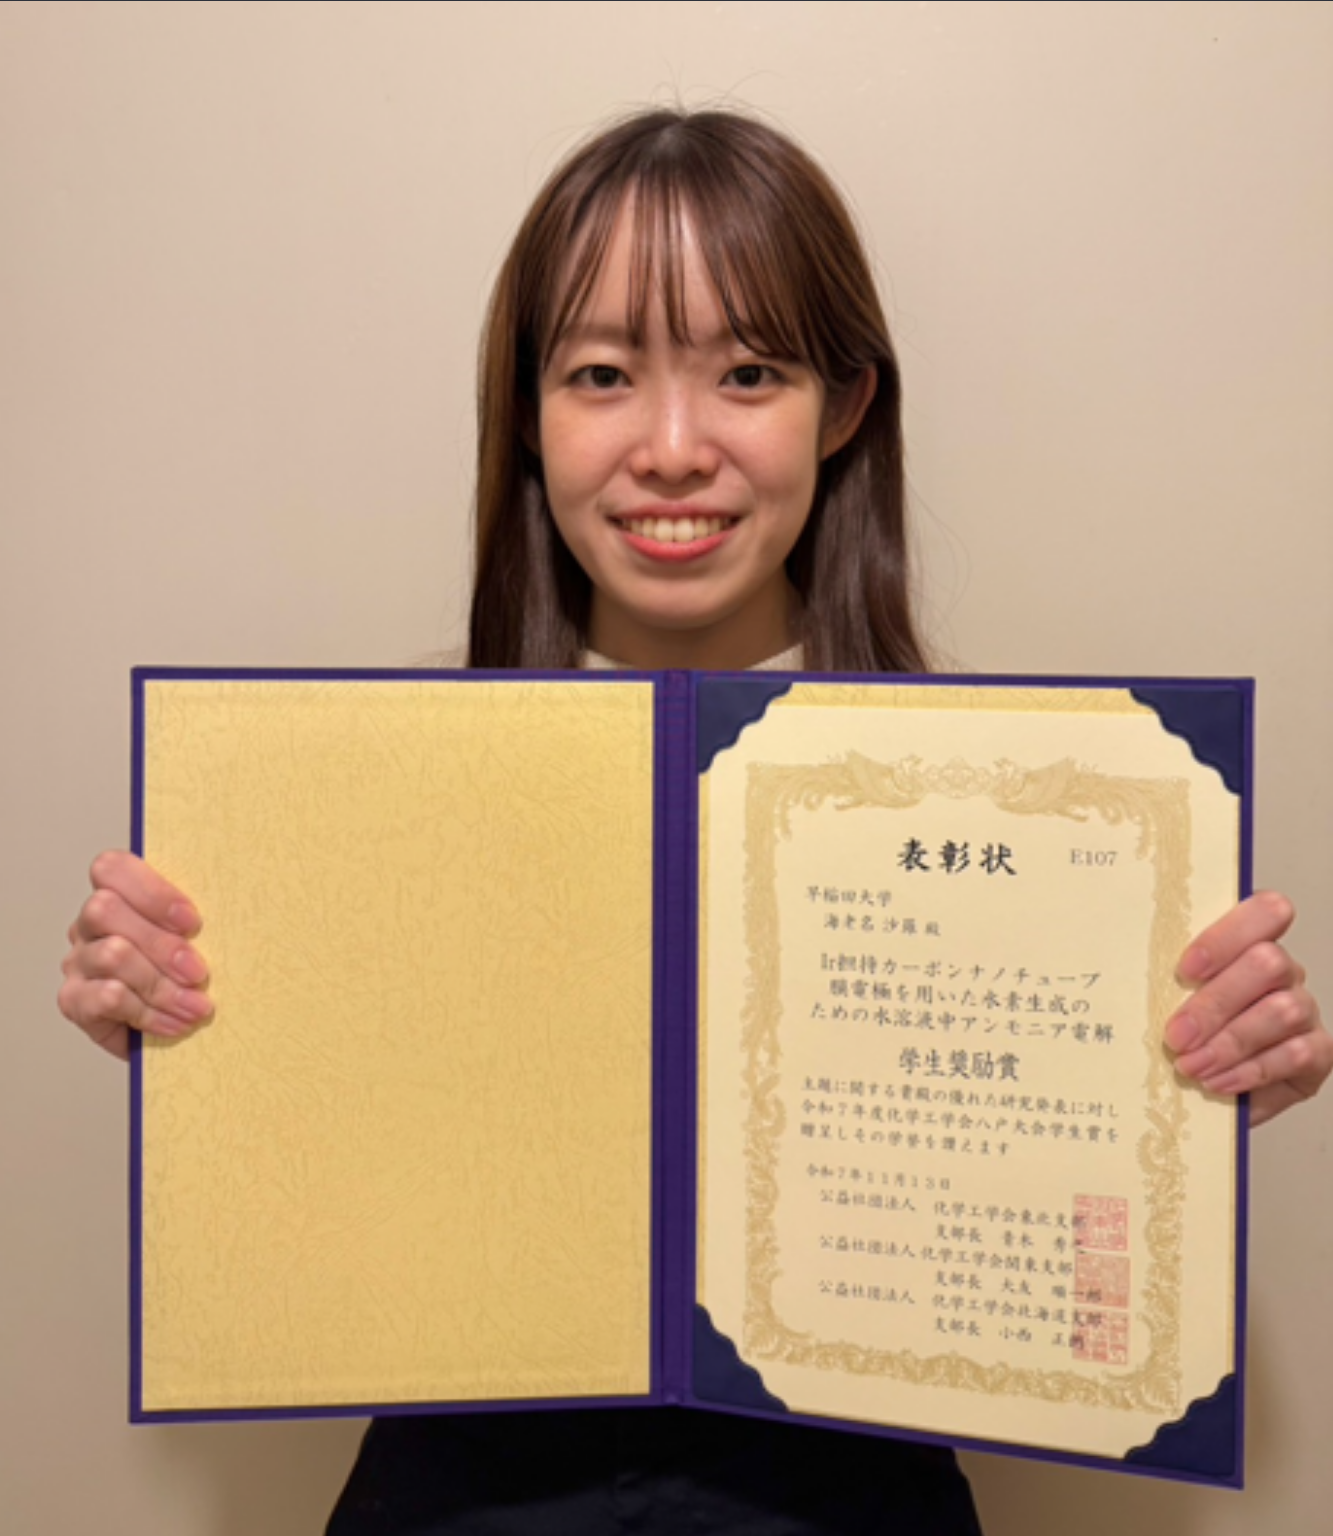 表彰状 E107
早稲田大学
海老名 沙羅 殿
Ir担持カーボンナノチューブ
膜電極を用いた水素生成の
ための水溶液中アンモニア電解
学生奨励賞
主題に関する貴殿の優れた研究発表に対し
令和7年度化学工学会八戸大会学生賞を
贈呈しその学誉を讃えます
令和7年11月13日
公益社団法人 化学工学会東北支部
支部長 青木 秀
公益社団法人 化学工学会関東支部
支部長 大友 順一郎
公益社団法人 化学工学会北海道支部
支部長 小西 正朗